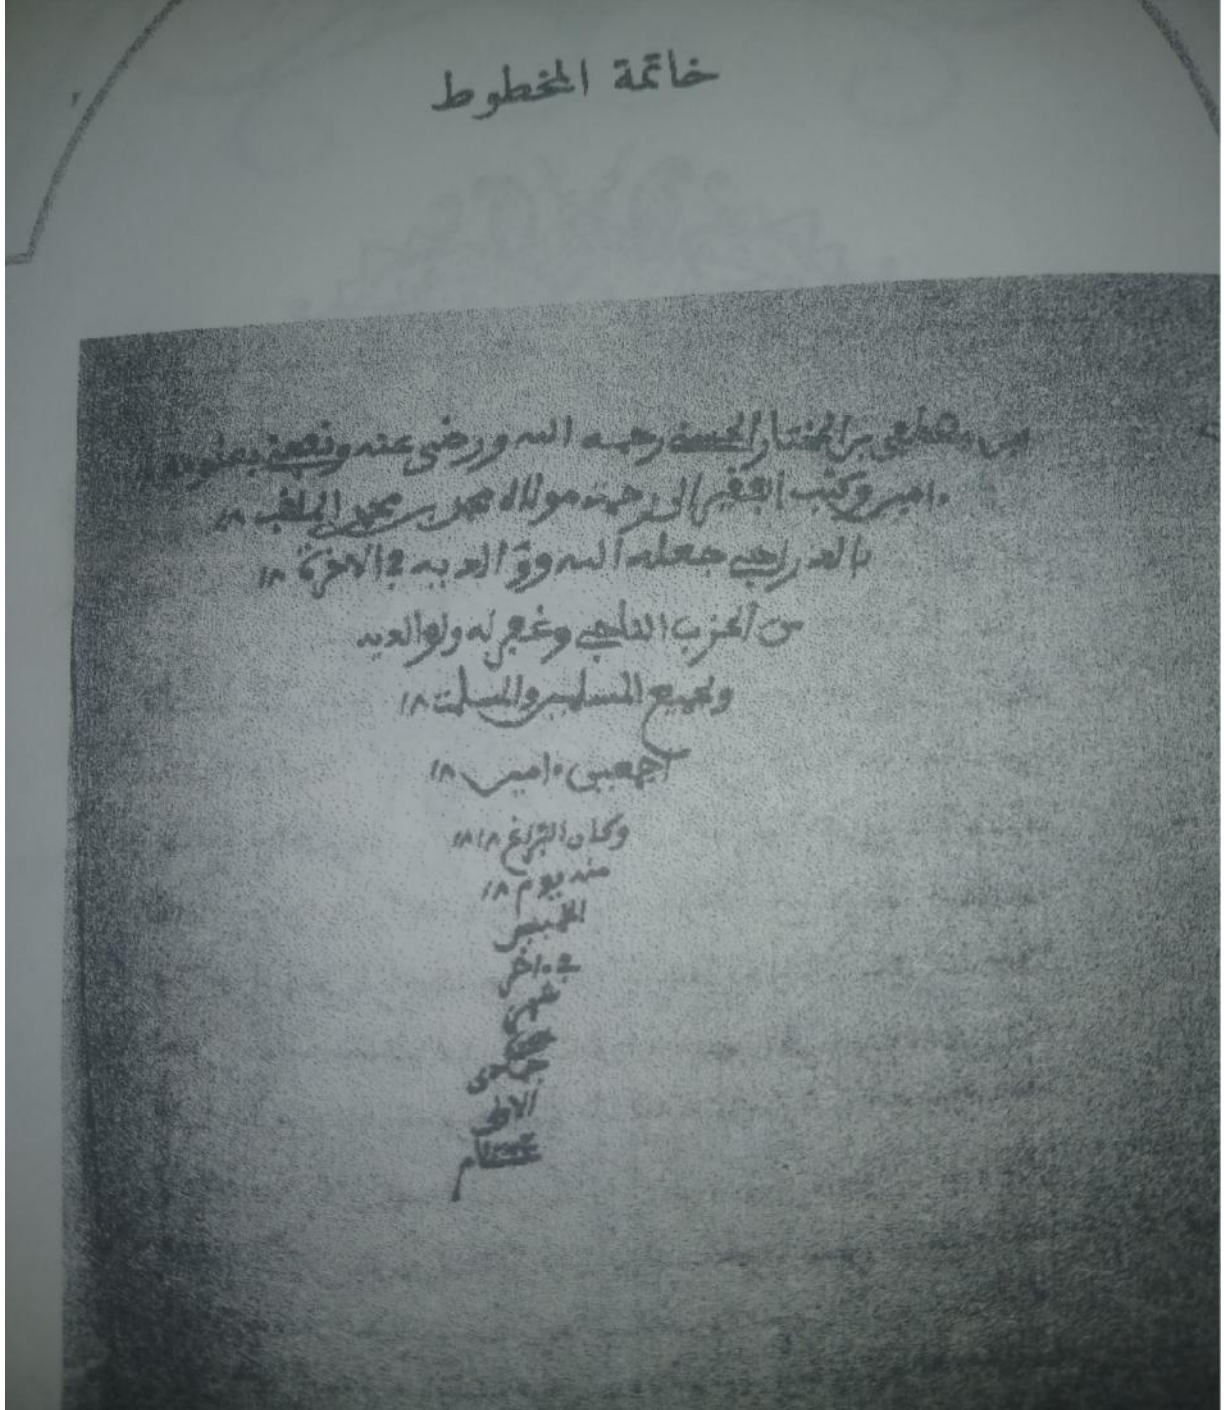 خاتمة المخطوط
بن مصطفى بن المختار الحسنى رحمه الله ورضى عنه ونفعنى بعلومه
ءامين وكتب الفقير الى رحمت مولاه محمد بن محمد الملقب
بالدراجي جعله الله ووالديه في الاخرة
من الحزب الناجي وغفر له ولوالديه
ولجميع المسلمين والمسلمت
اجمعين ءامين
وكان الفراغ
منه يوم
الخميس
في ءاخر
جمادى
الاولى